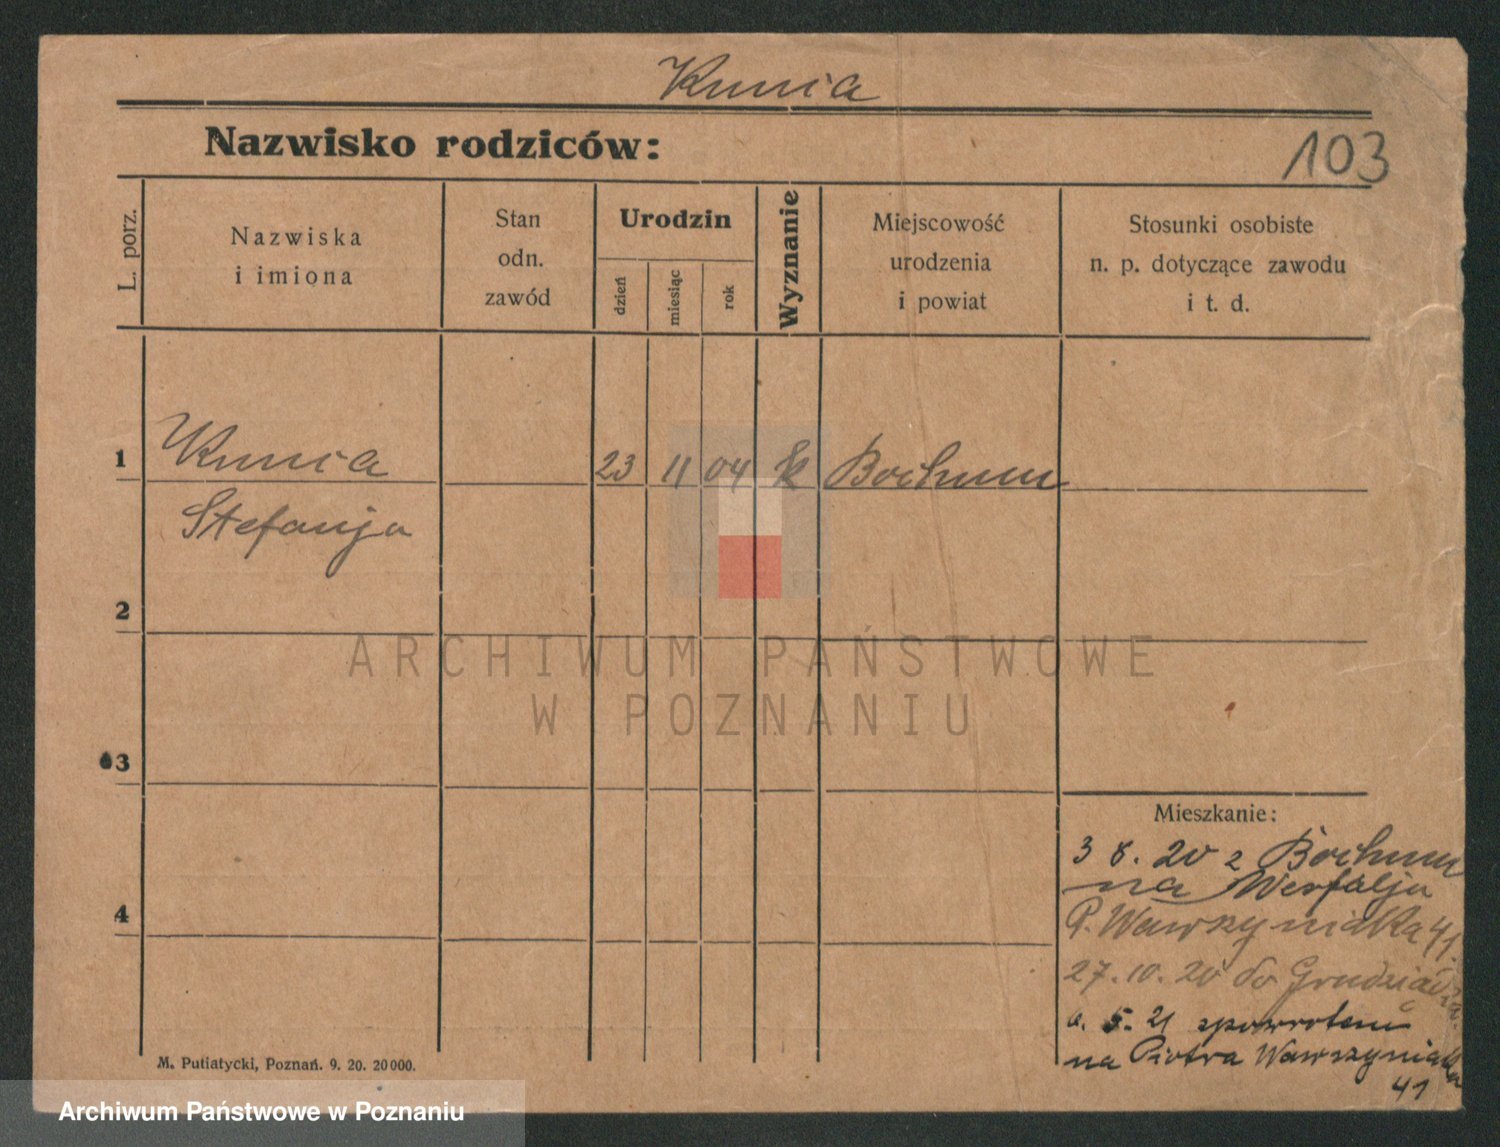 Kunia
Nazwisko rodziców:
103
L. porz.
Nazwiska
i imiona
Stan
odn.
zawód
Urodzin
dzień
miesiąc
rok
Wyznanie
Miejscowość
urodzenia
i powiat
Stosunki osobiste
n. p. dotyczące zawodu
i t. d.
1
Kunia 23 11 04 k Bochum
Stefanja
2
ARCHIWUM PAŃSTWOWE
W POZNANIU
3
Mieszkanie:
3 8. 20 z Bochum
na Wesfalju
P. Wawrzyniaka 41.
4
27. 10. 20 do Grudziądza
5. 21 spowrotem
na Piotra Wawrzyniaka
41
M. Putiatycki, Poznań. 9. 20. 20000.
Archiwum Państwowe w Poznaniu